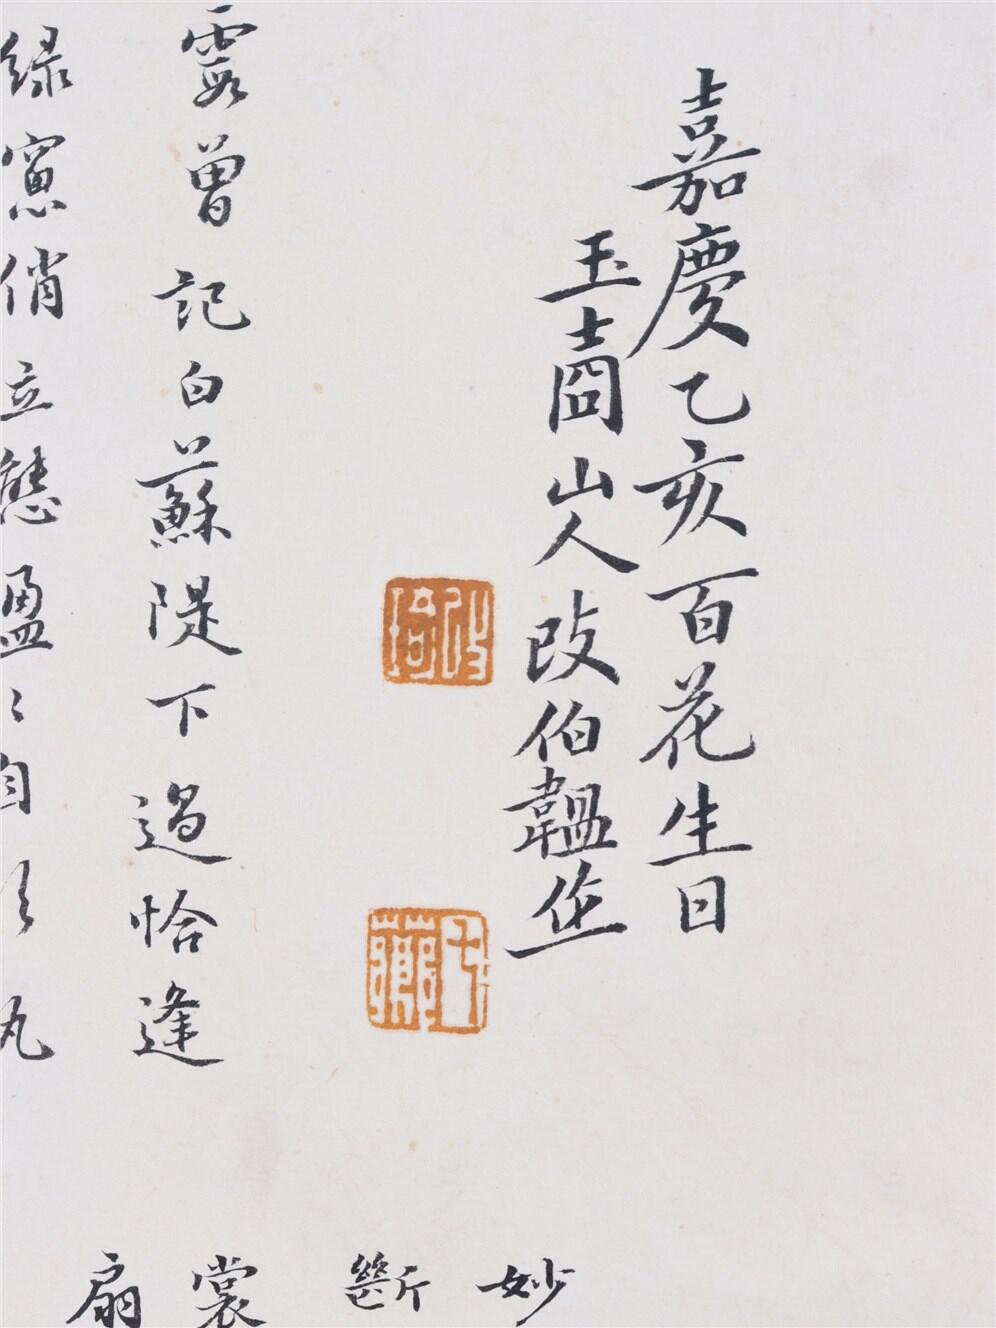 嘉慶乙亥百花生日
玉壺山人改伯韞作
霞曾記白蘇隄下過恰逢
緑窻俏立態盈〻自
丸
妙
斷
裳
扇